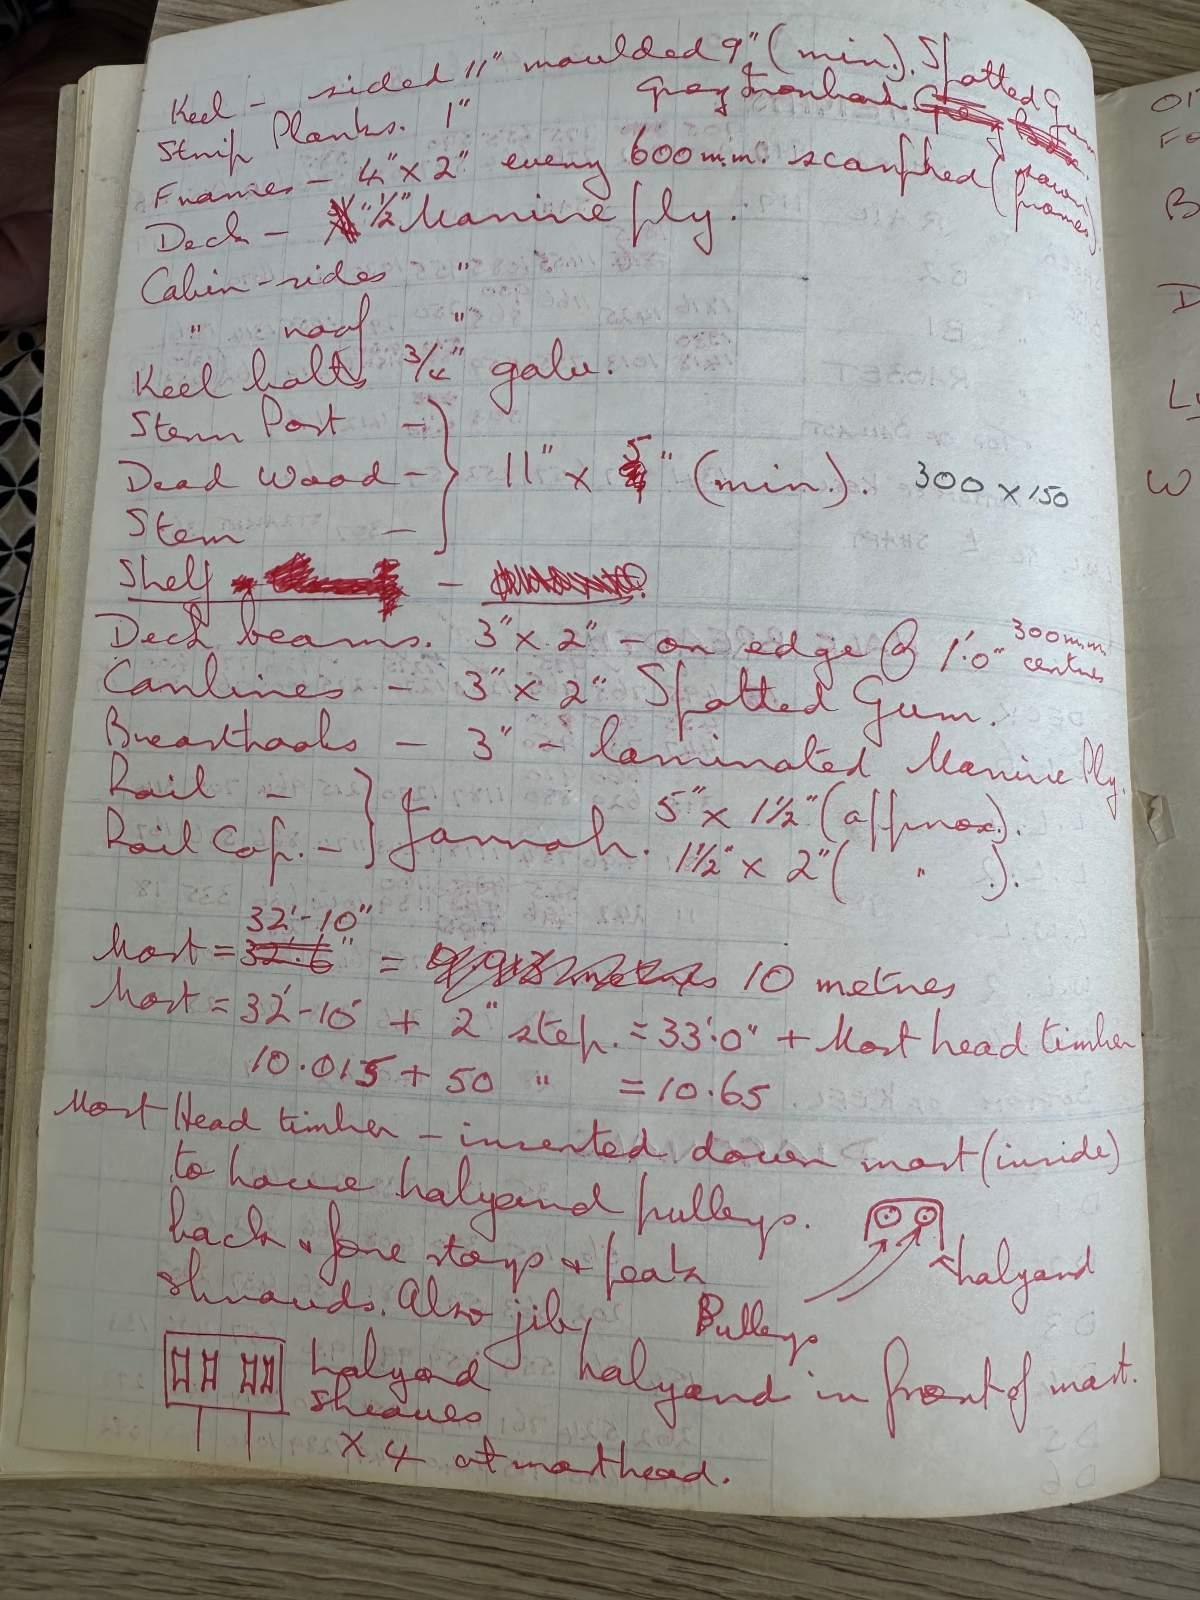 Keel - sided 11" moulded 9" (min.). Spotted Gum
grey Ironbark.
Strip Planks. 1"
Frames - 4" x 2" every 600 m.m. scarphed (sawn frames).
Deck - 1/2" Marine ply.
Cabin-sides "
" roof "
Keel bolts 3/4" galv.
Stern Post -
Dead Wood - 11" x 5" (min.). 300 x 150
Stem -
Shelf -
Deck beams. 3" x 2" - on edge @ 1'.0" 300 m.m. centres
Carlines - 3" x 2" Spotted Gum.
Breasthooks - 3" - laminated Marine Ply.
Rail - Jarrah. 5" x 1 1/2" (approx.).
Rail Cap. - 1 1/2" x 2" ( " ).
32'-10"
Mast = 32'.6" = 10 metres
Mast = 32'-10" + 2" step. = 33'.0" + Mast head timber
10.015 + 50 " = 10.65
Mast Head timber - inserted down mast (inside)
to house halyard pulleys.
back & fore stays & peak
shrouds. Also jib,
halyard
Pulleys
halyard in front of mast.
halyard
sheaves
x 4 at masthead.